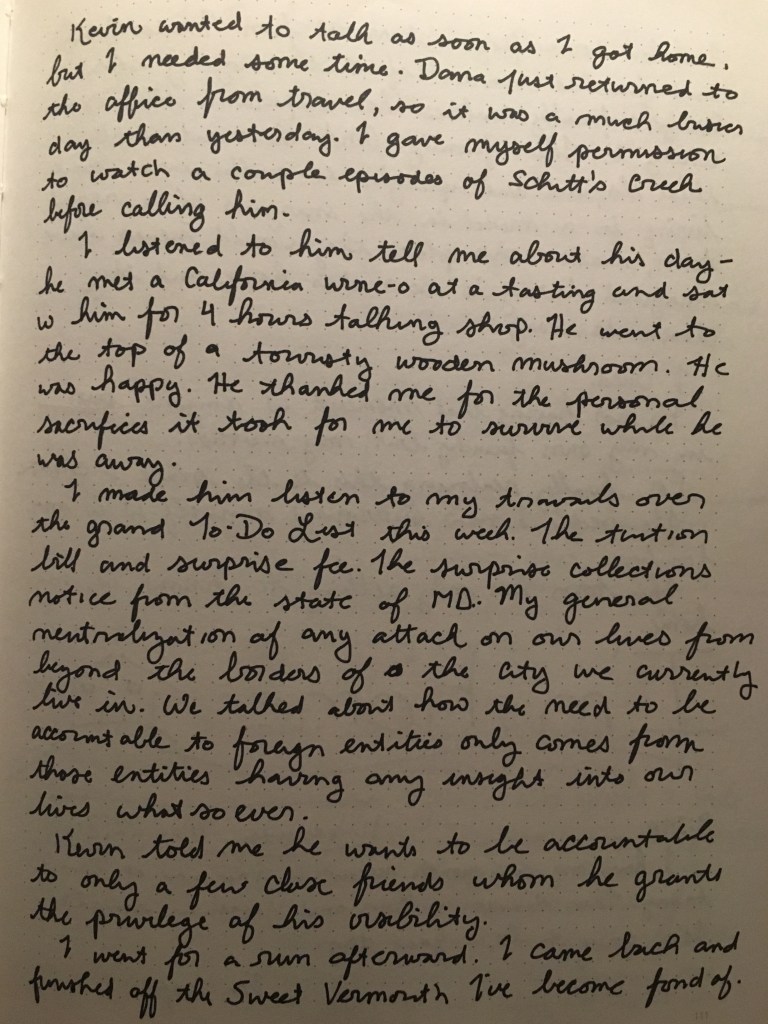 Kevin wanted to talk as soon as I got home,
but I needed some time. Dana just returned to
the office from travel, so it was a much busier
day than yesterday. I gave myself permission
to watch a couple episodes of Schitt's Creek
before calling him.
I listened to him tell me about his day-
he met a California wine-o at a tasting and sat
w him for 4 hours talking shop. He went to
the top of a touristy wooden mushroom. He
was happy. He thanked me for the personal
sacrifices it took for me to survive while he
was away.
I made him listen to my travails over
the grand To-Do List this week. The tuition
bill and surprise fee. The surprise collections
notice from the state of MD. My general
neutralization of any attack on our lives from
beyond the borders of the city we currently
live in. We talked about how the need to be
accountable to foreign entities only comes from
those entities having any insight into our
lives what so ever.
Kevin told me he wants to be accountable
to only a few close friends whom he grants
the privilege of his visibility.
I went for a run afterward. I came back and
finished off the Sweet Vermouth I've become fond of.